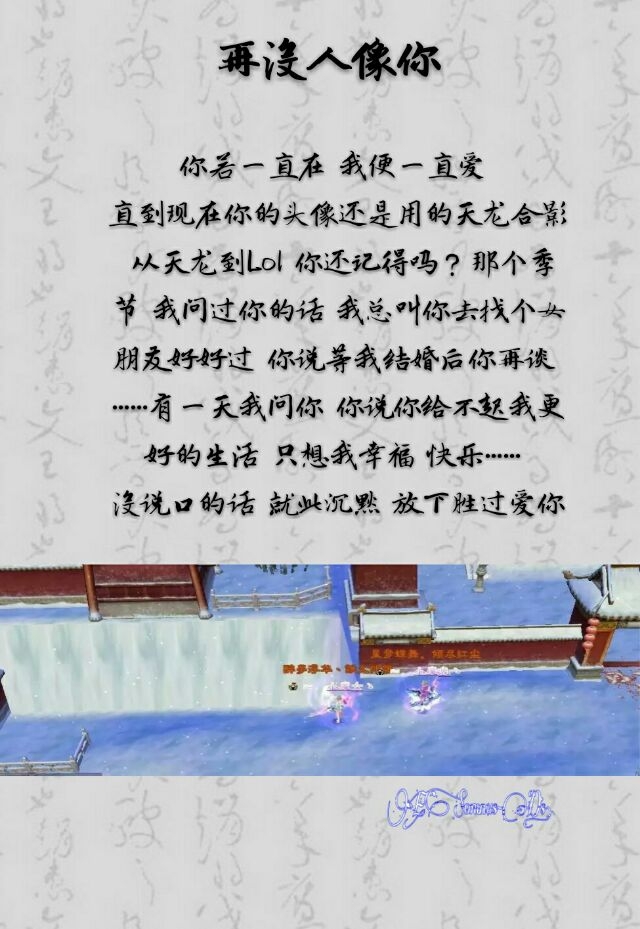 再没人像你
你若一直在 我便一直爱
直到现在你的头像还是用的天龙合影
从天龙到Lol 你还记得吗？那个季
节 我问过你的话 我总叫你去找个女
朋友好好过 你说等我结婚后你再谈
……有一天我问你 你说你给不起我更
好的生活 只想我幸福 快乐……
没说口的话 就此沉默 放下胜过爱你
蝶舞。倾尽红尘